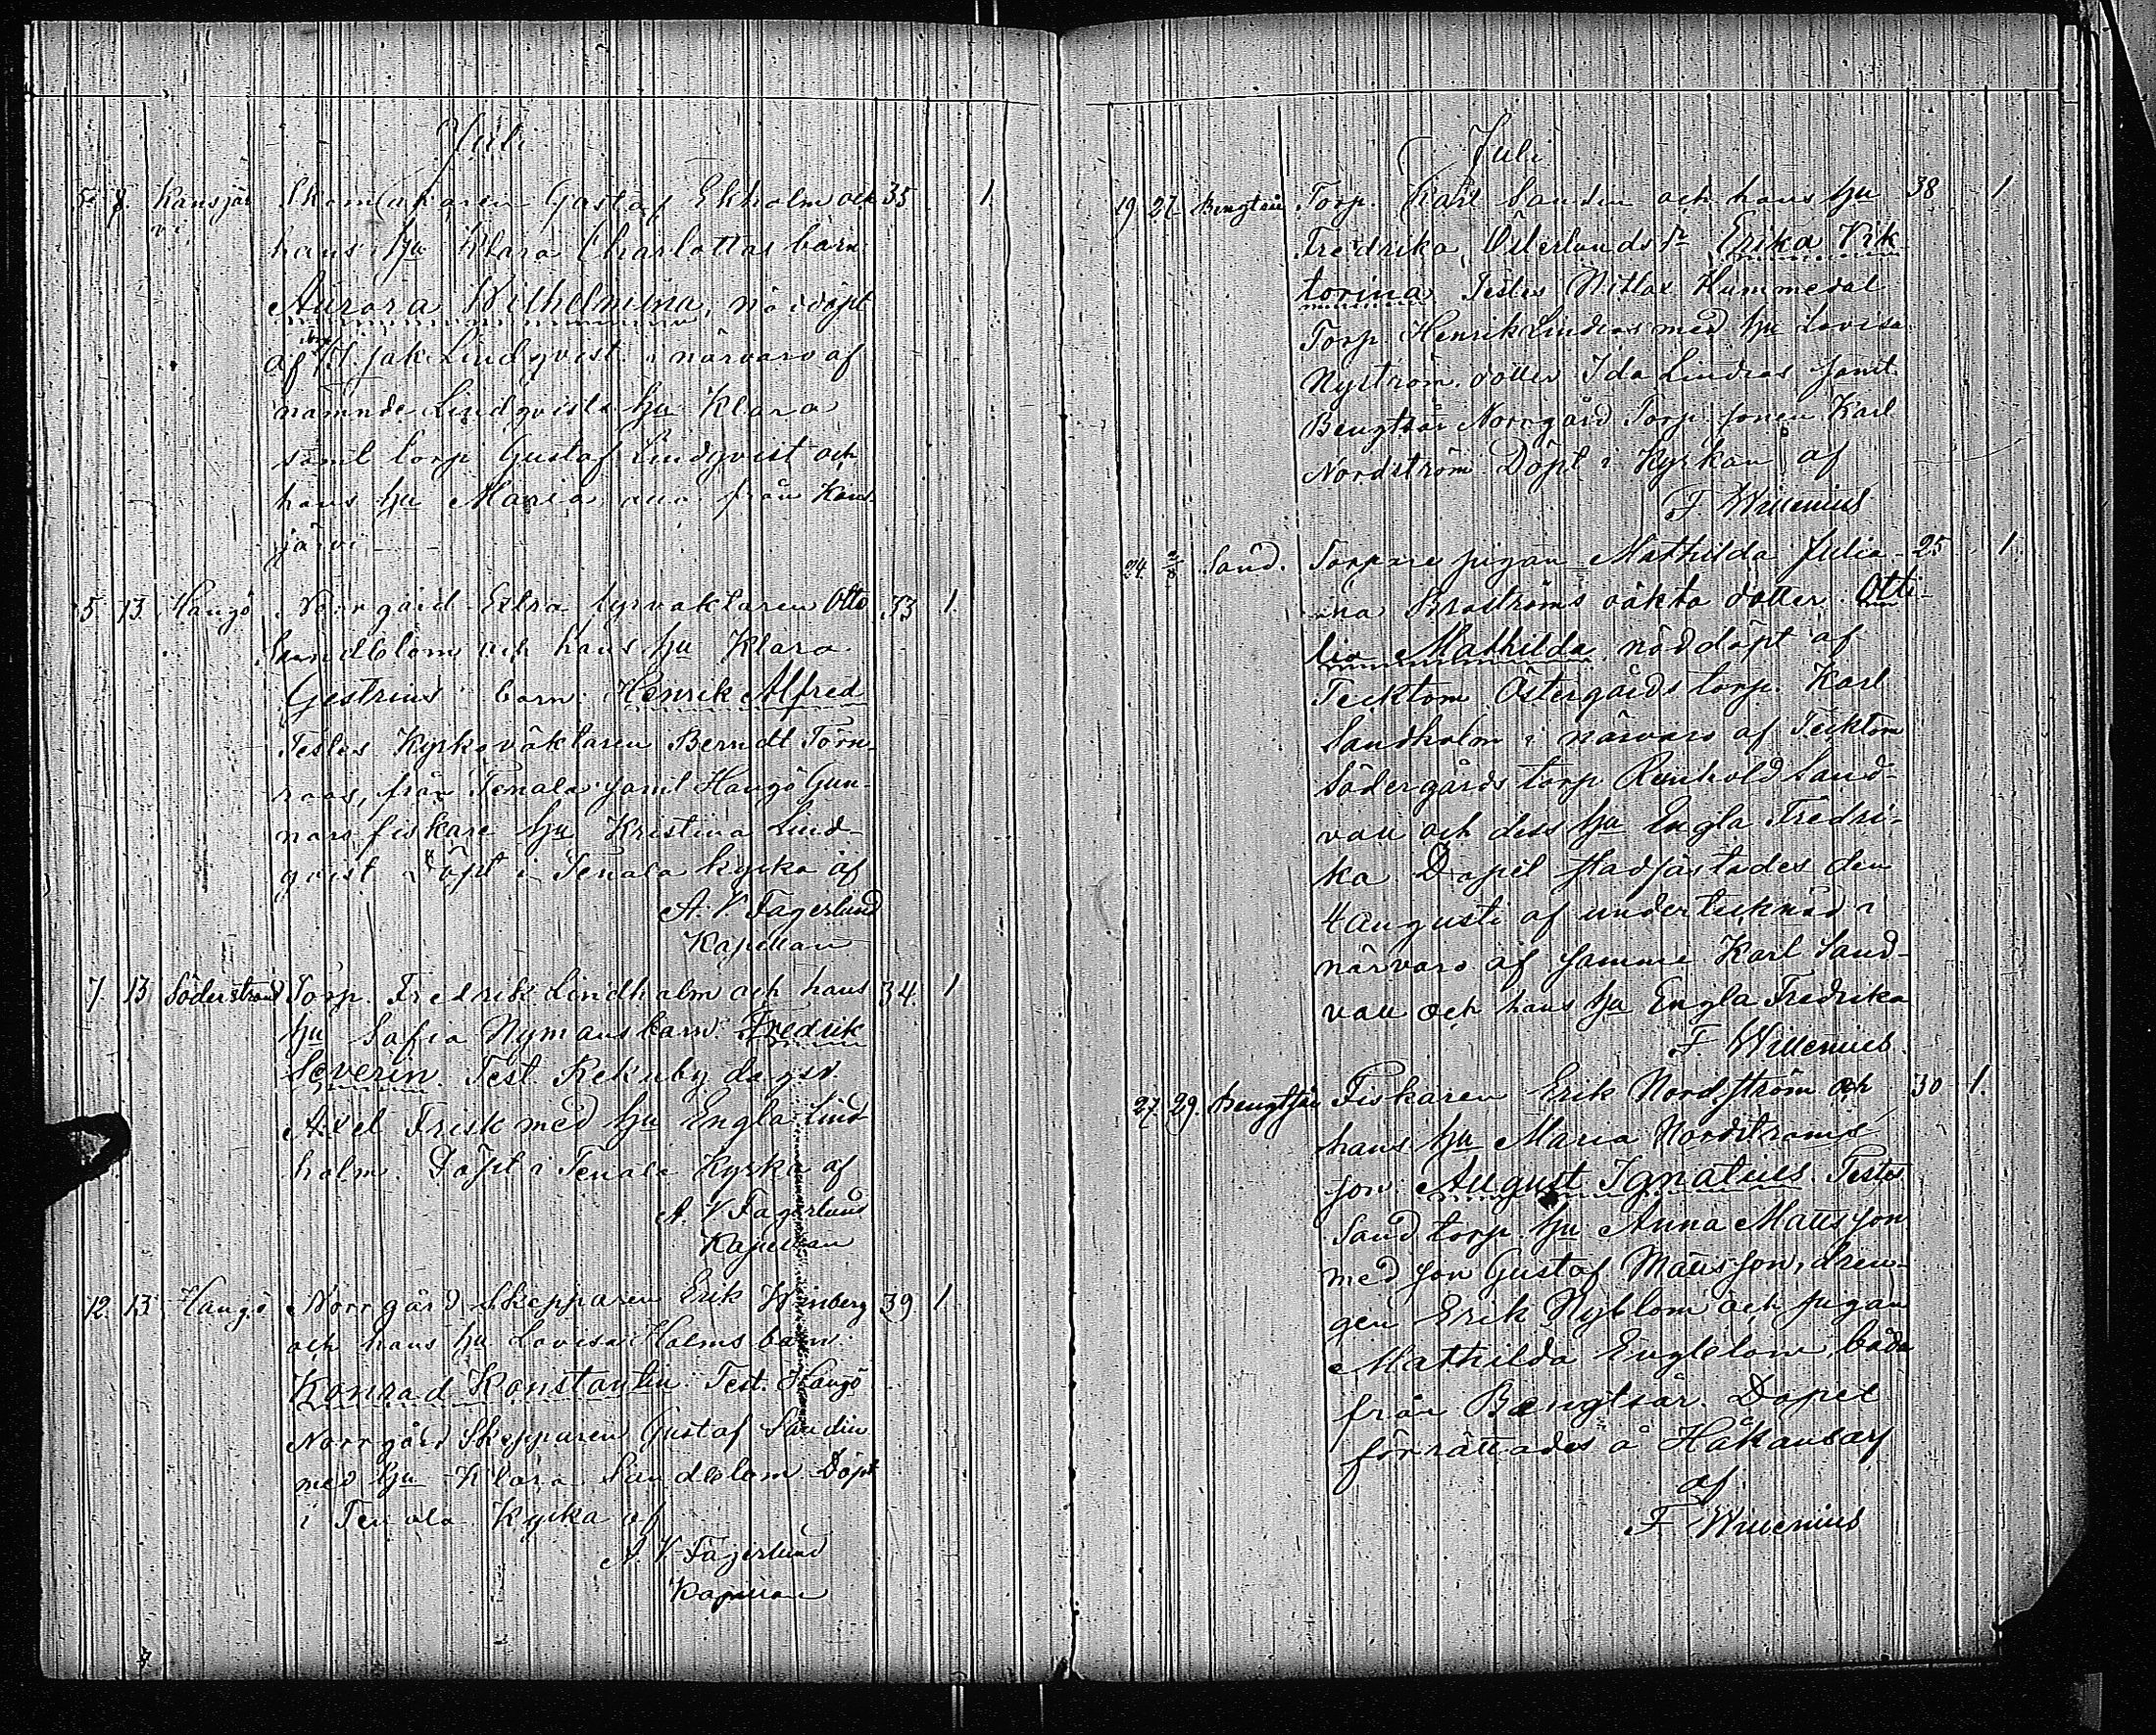 Juli
5. 8. Kansjär Skomakaren Gustaf Ekholm och 35 1
vi hans hu Klara Charlottas barn
Aurora Wilhelmina, nöddöpt
af Jak Lindqvist i närvaro af
nämnde Lindqvists hu Klara
samt torp Gustaf Lindqvist och
hans hu Maria, alla från Kans-
järvi
5. 13. Hangö Norrgård Extra fyrvaktaren Otto 33 1
Sandblom och hans hu Klara
Gestrins barn Henrik Alfred
Testes Kyrkoväktaren Berndt Törn-
roos, från Tenala samt Hangö Gun-
nars fiskare hu Kristina Lind-
qvist Döpt i Tenala kyrka af
A. V Fagerlund
Kapellan
7. 13 Söderstrand Torp. Fredrik Lindholm och hans 34. 1
hu Sofia Nymans barn Fredrik
Severin. Test. Rekuby dagsv
Axel Frisk med hu Engla Lind
holm. Döpt i Tenala Kyrka af
A. V Fagerlund
Kapellan
12. 13 Hangö Norrgård Skepparen Erik Winberg 39 1
och hans hu Lovisa Holms barn
Konrad Konstantin. Test. Hangö
Norrgård Skepparen Gustaf Sandin
med hu Klara Sandblom Döpt
i Tenala Kyrka af
A V Fagerlund
Kapellan
Juli
19 27. Bengtsår Torp. Karl Sandin och hans hu 38 1
Fredrika Österlunds dr Erika Vik
torina Testes Nitlax Kummedal
Torp. Henrik Lindros med hu Lovisa
Nyström dotter Ida Lindros samt
Bengtsår Norrgård Torp. sonen Karl
Nordström Döpt i Kyrkan af
F Willenius
24. 2/8 Sand. Torpare pigan Mathilda Julia- 25 1
na Broströms oäkta dotter Otti-
lia Mathilda nöddöpt af
Tecktom Östergårds torp. Karl
Sandholm i närvaro af Tecktom
Södergårds torp Reinhold Sand-
vall och dess hu Engla Fredri-
ka Dopet stadfästades den
4 Augusti af undertecknad i
närvaro af samme Karl Sand-
vall och hans hu Engla Fredrika
F. Willenius.
27. 29. Bengtsår Fiskaren Erik Nordström och 30 1.
hans hu Maria Nordströms
son August Ignatius. Testes
Sand torp. hu Anna Mattsson
med son Gustaf Mattsson, dren-
gen Erik Nyblom och pigan
Mathilda Engblom, båda
från Bengtsår. Dopet
förrättades å Håkansarf
af
F Willenius